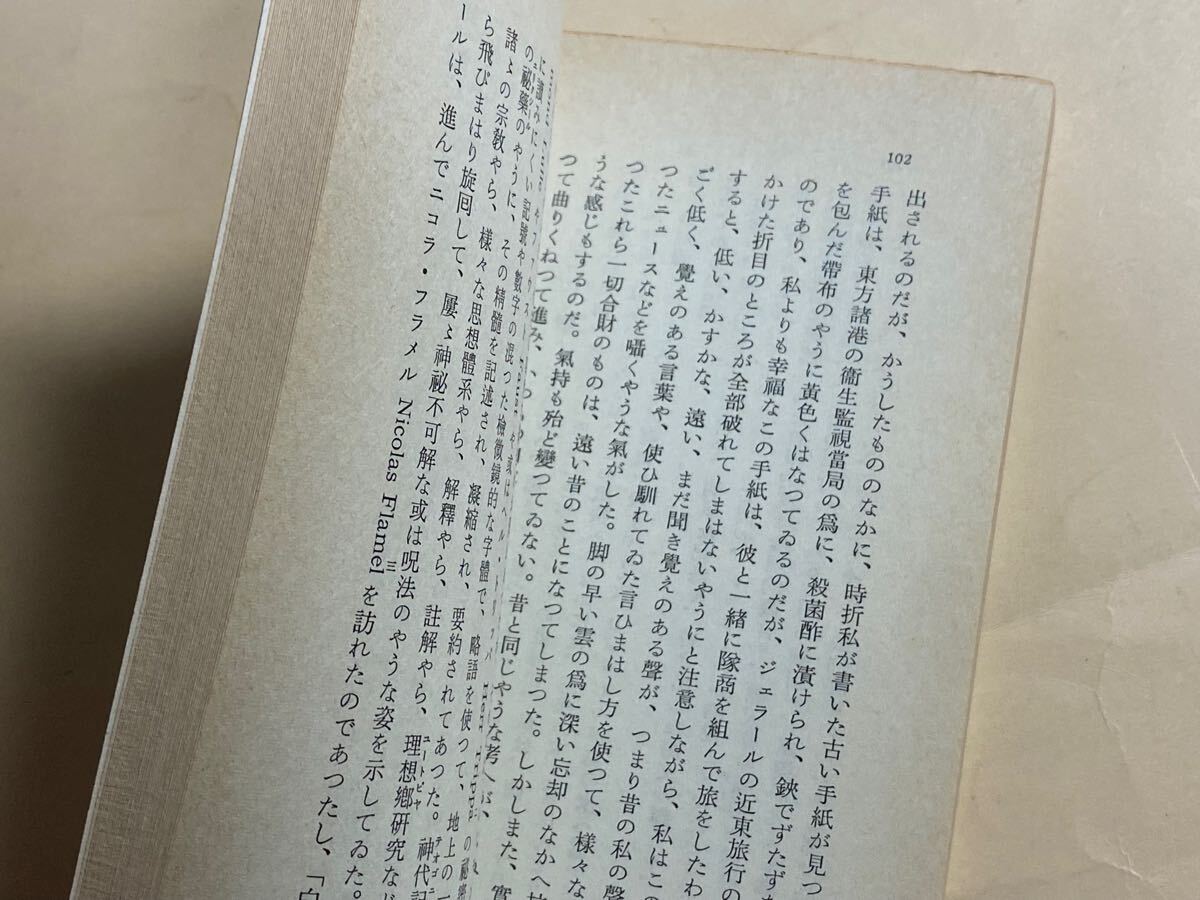 102
出されるのだが、かうしたもののなかに、時折私が書いた古い手紙が見つ
手紙は、東方諸港の衞生監視當局の爲に、殺菌酢に漬けられ、鋏でずたずた
を包んだ帶布のやうに黃色くはなつてゐるのだが、ジェラールの近東旅行の
のであり、私よりも幸福なこの手紙は、彼と一緖に隊商を組んで旅をしたわ
かけた折目のところが全部破れてしまはないやうにと注意しながら、私はこの
すると、低い、かすかな、遠い、まだ聞き覺えのある聲が、つまり昔の私の聲
ごく低く、覺えのある言葉や、使ひ馴れてゐた言ひまはし方を使つて、樣々な
つたニュースなどを囁くやうな氣がした。脚の早い雲の爲に深い忘却のなかへ
つたこれら一切合財のものは、遠い昔のことになつてしまつた。しかしまた、實
うな感じもするのだ。氣持も殆ど變つてゐない。昔と同じやうな考へが、
つて曲りくねつて進み、
に讀みにくい記號や數字の混つた檢微鏡的な字體で、略語を使つて、地上の
の祕藥のやうに、その精髓を記述され、凝縮され、要約されてあつた。神代記
諸〻の宗敎やら、樣々な思想體系やら、解釋やら、註解やら、理想鄕硏究など
ら飛びまはり旋囘して、屢〻神祕不可解な或は呪法のやうな姿を示してゐた。
ールは、進んでニコラ・フラメル Nicolas Flamel を訪れたのであつたし、「